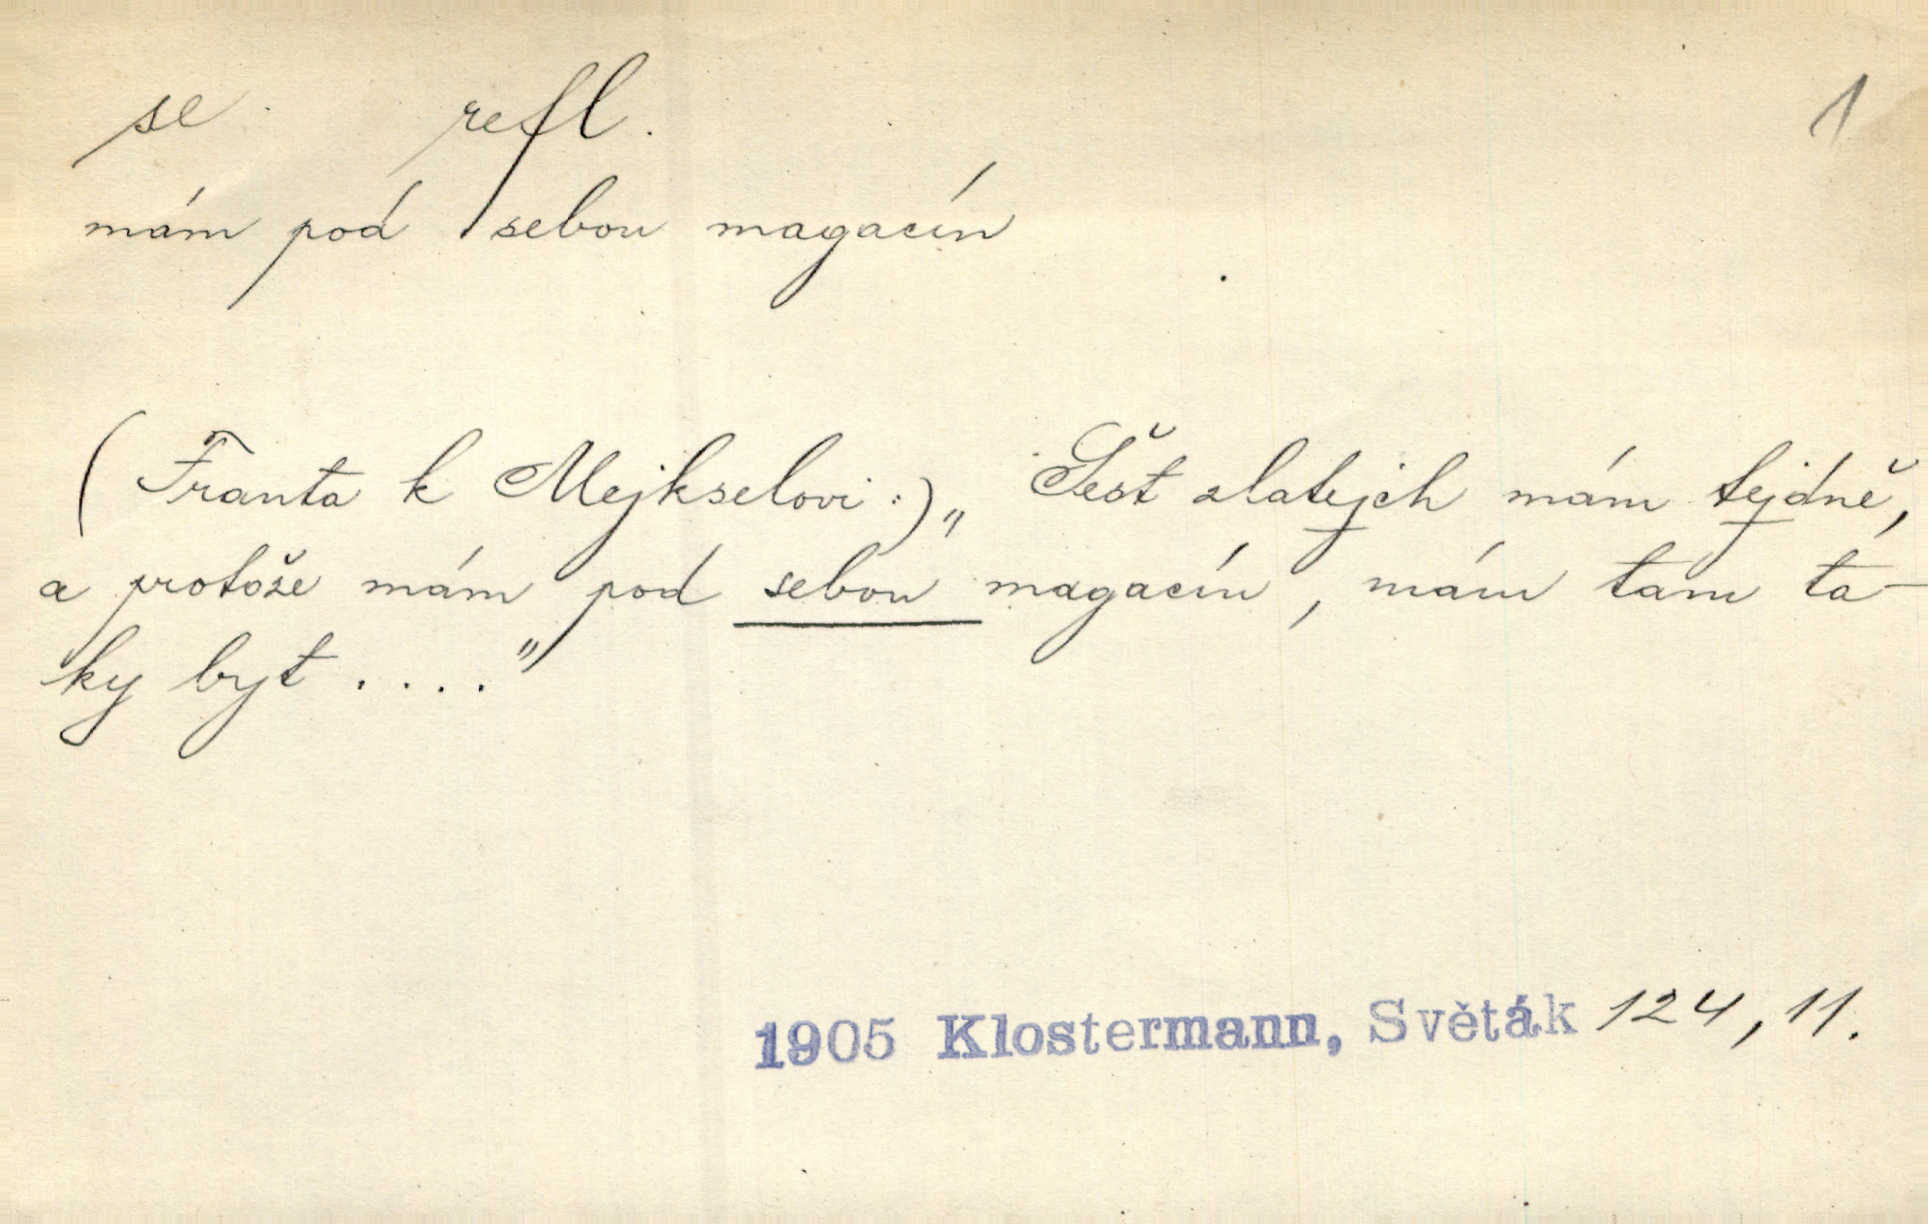 se refl. 1
mám pod sebou magacín
(Franta k Mejkselovi:) „Šest zlatejch mám tejdně,
a protože mám pod sebou magacín, mám tam ta-
ky byt ...."
1905 Klostermann, Světák 124, 11.